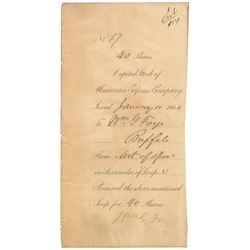 No 17
40 Shares
Capital Stock of
American Express Company.
Issued January 10 186
To Wm G Fargo
Buffalo
From
on Surrender of Scrip No
Received the above mentioned
Scrip for 40 Shares
Wm G Fargo